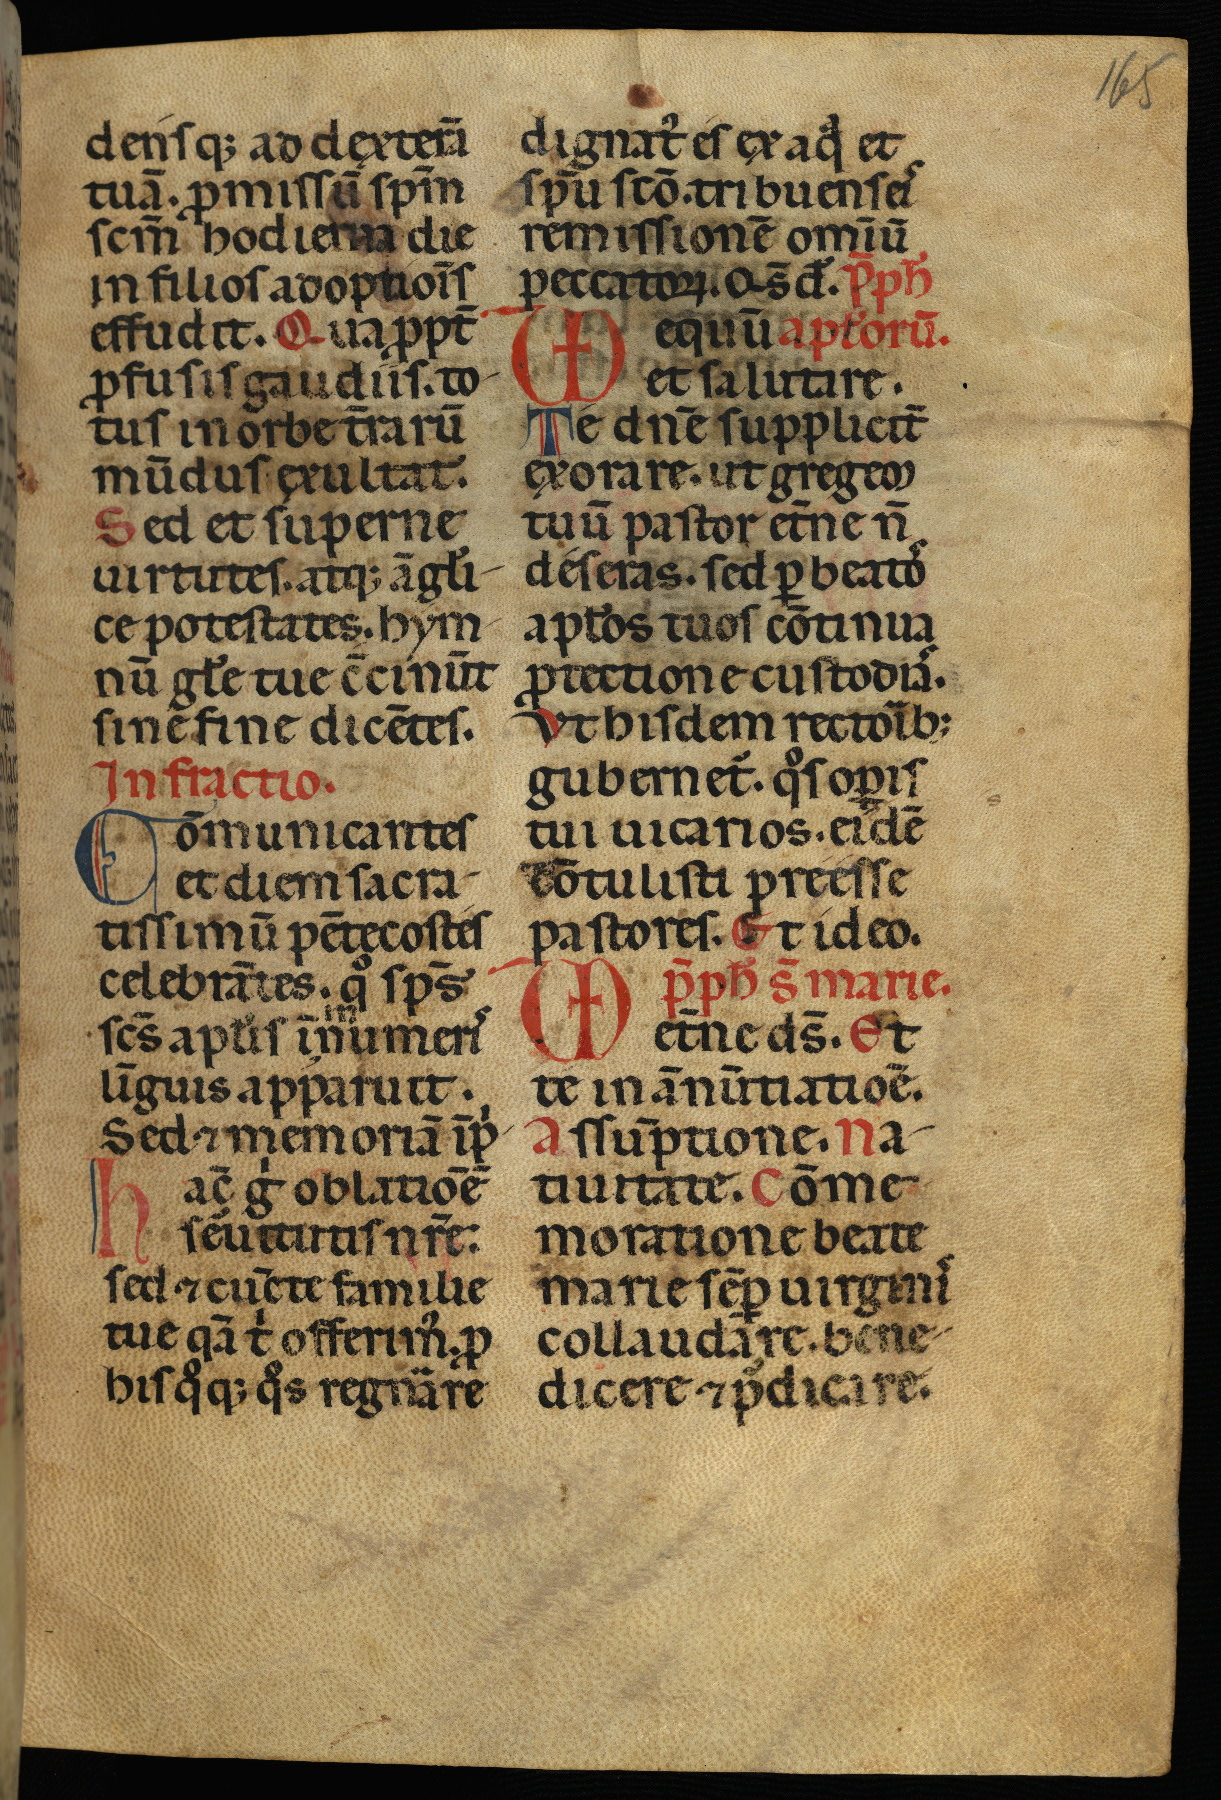 165
densq; ad dexterā
tuā. ꝓmissū spm̄
scm̄ hodierna die
in filios adoptiois̄
effudit. Qua ppt̄
ꝓfusis gaudiis. to-
tus in orbe t̄rarū
mūdus exultat.
Sed et superne
uirtutes. atq; āgli-
ce potestates. hym-
nū gl̄e tue c̄cinūt
sine fine dicētes.
Infractio.
Cōmunicantes
et diem sacra-
tissimū pētecostes
celebrātes. qͦ sps̄
scs̄ apl̄is īnumeris
līguis apparuit.
Sed ⁊ memoriā īp̍-
hac̄ g̍ oblatioē
seruitutis nr̄e:
sed ⁊ cūcte familie
tue qā t̍ offerim᷒. ꝓ
his qͦq; qͦs regnāre
dignat᷒ es ex aq̄ et
sp̄u scō. tribuens eis
remissionē omiū
peccatoꝝ. Q. s̄. d̄. P̄ph̄
VD equū aptorū.
et salutare.
Te dnē suppliciт̄
exorare. ut gregem
tuū pastor et̄ne n̄
deseras. sed ꝑ beatos
apl̄os tuos cōtinua
ꝓtectione custodias.
Vt hisdem rectoīb;
gubernet᷒. qͦs oꝑis
tui uicarios. eidē
cōtulisti preesse
pastores. Et ideo.
p̄ph̄ s̄ marie.
VD et̄ne ds̄. Et
te in ānūtiatioē.
Assūptione. Na-
tiuitate. Cōme-
moratione beate
marie sēꝑ uirginis
collaudāre. bene-
dicere ⁊ p̄dicare.